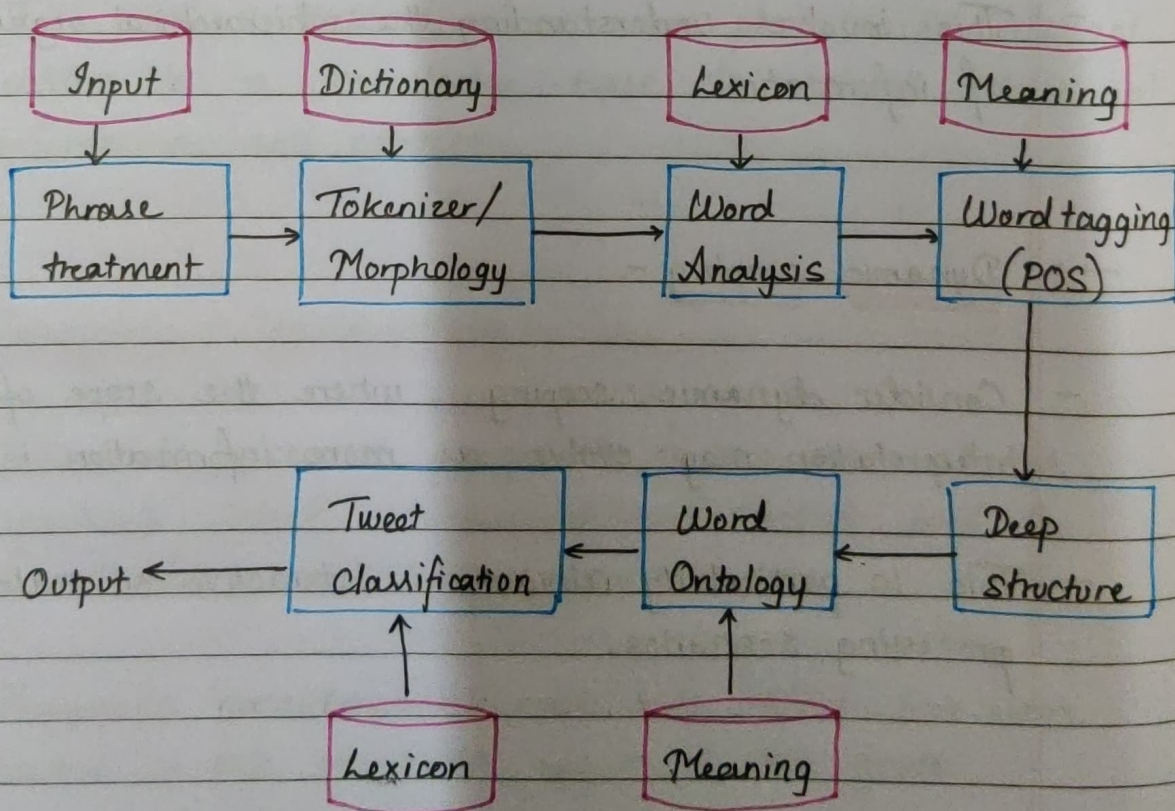 Input
Dictionary
Lexicon
Meaning
Phrase
treatment
Tokenizer/
Morphology
Word
Analysis
Word tagging
(POS)
Deep
structure
Word
Ontology
Tweet
Classification
Output
Lexicon
Meaning